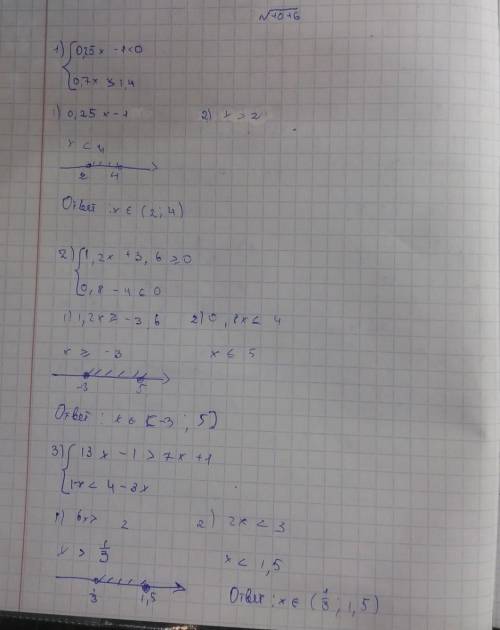 √+0+6
1) { 0,25x -1<0
0,7x ≥ 1,4
1) 0,25x-1 2) x > 2
x < 4
2 4
Ответ: x ∈ (2; 4)
2) { 1,2x +3,6 ≥0
0,8 - 4 ≤ 0
1) 1,2x ≥ -3,6 2) 0,8x ≤ 4
x ≥ -3 x ≤ 5
-3 5
Ответ: x ∈ [-3; 5]
3) { 13x -1 > 7x +1
1-x < 4-3x
1) 6x> 2 2) 2x < 3
x > 1/3 x < 1,5
1/3 1,5 Ответ: x ∈ (1/3; 1,5)